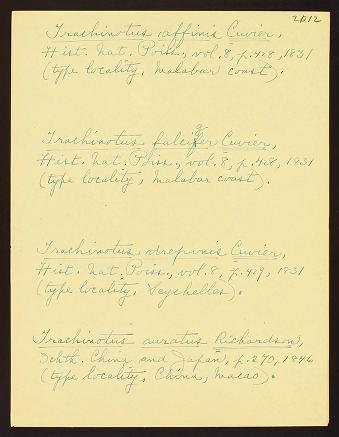 2012
Trachinotus affinis Cuvier,
Hist. Nat. Poiss., vol. 8, p. 428, 1831
(type locality, Malabar coast).
Trachinotus falciger Cuvier,
Hist. Nat. Poiss., vol. 8, p. 428, 1831
(type locality, Malabar coast).
Trachinotus drepanis Cuvier,
Hist. Nat. Poiss., vol. 8, p. 429, 1831
(type locality, Seychelles).
Trachinotus auratus Richardson,
Ichth. China and Japan, p. 270, 1846
(type locality, China, Macao).